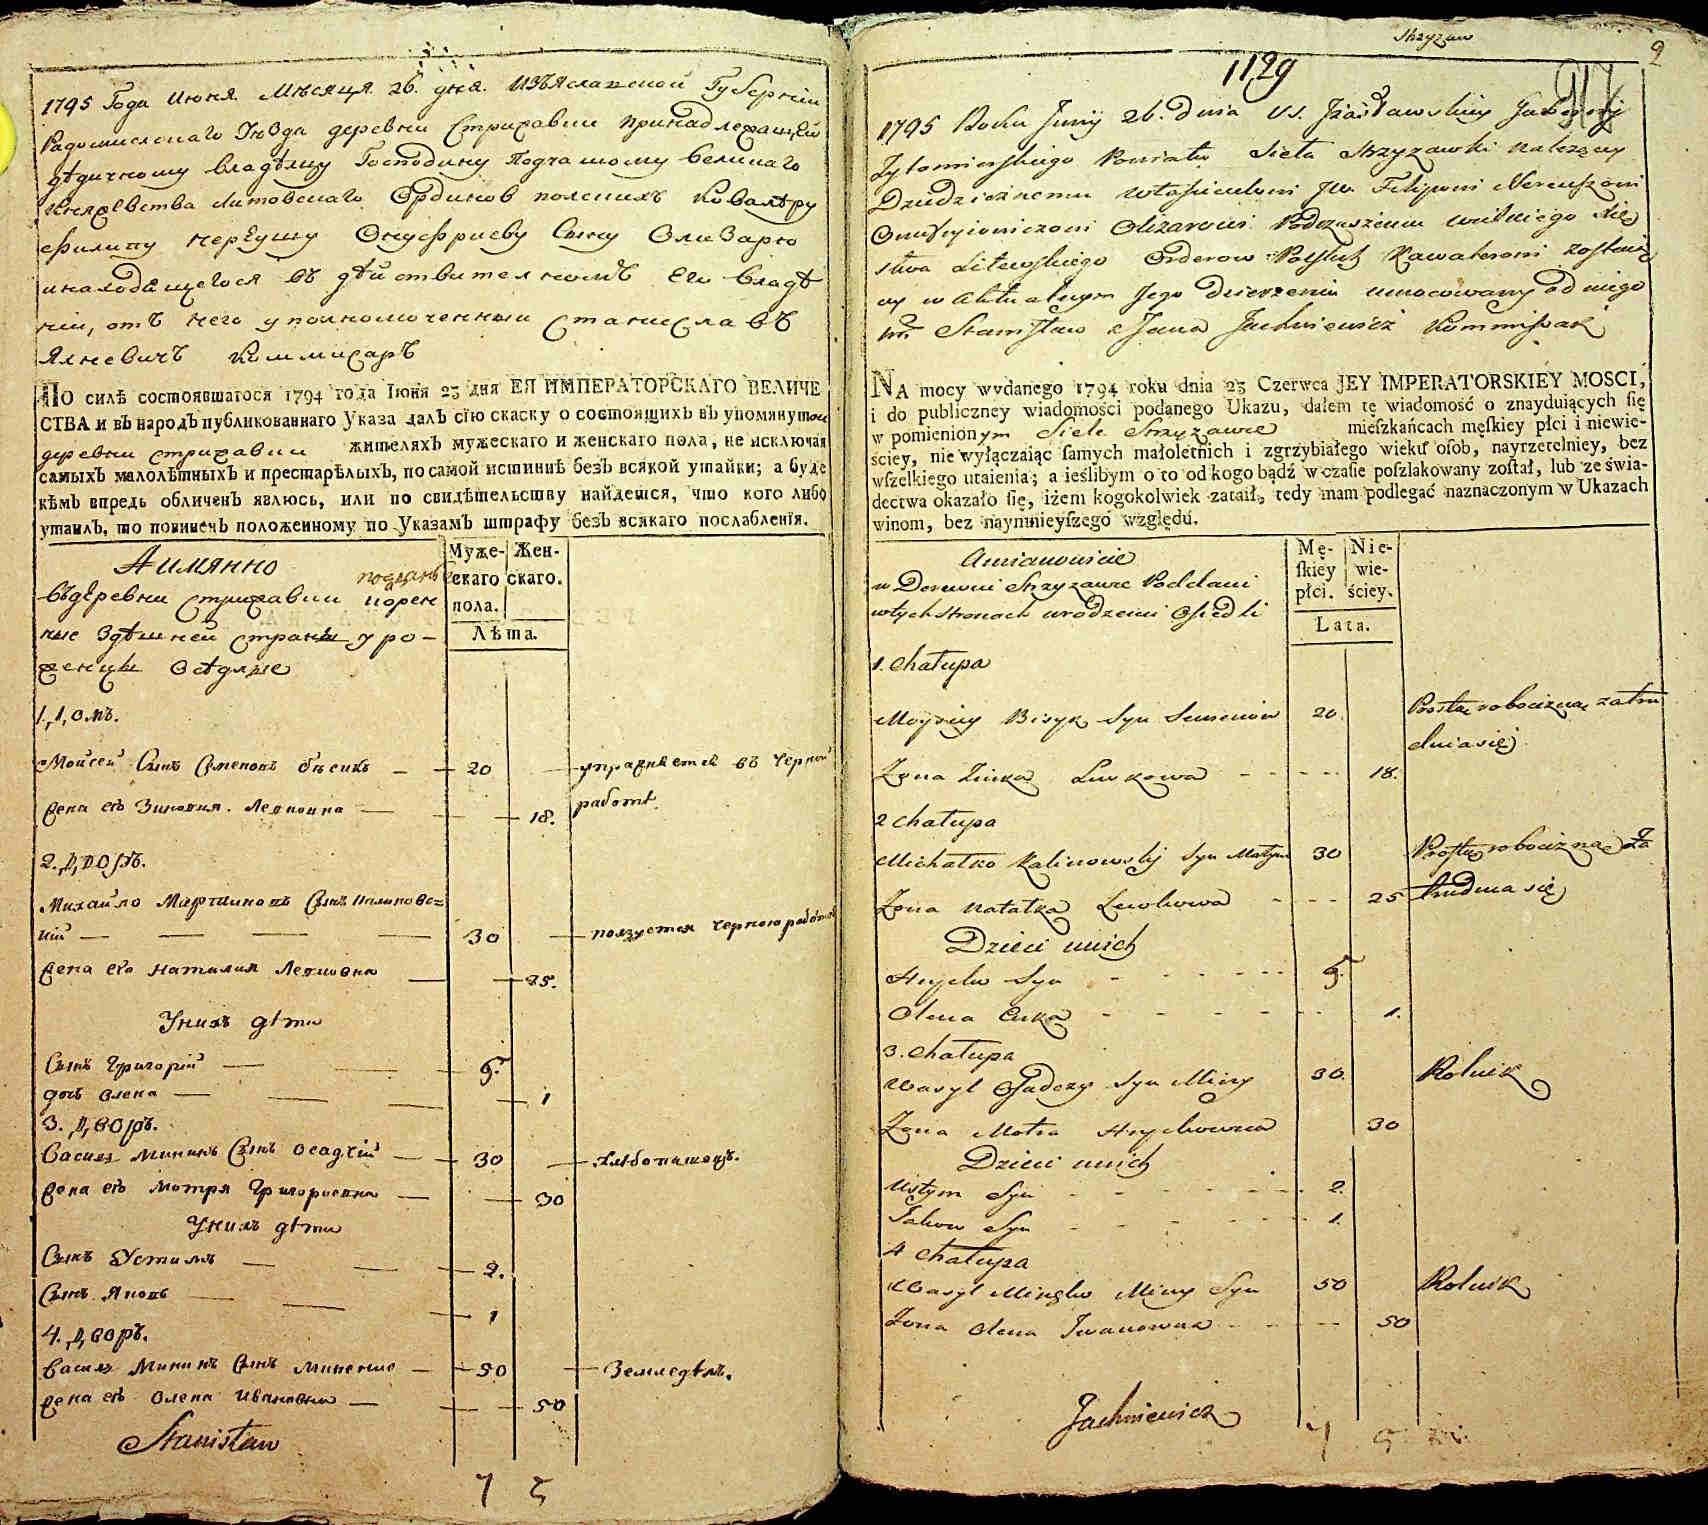 1795 Года Июня Мѣсяца 26. дня. Изъяславской Губерніи
Радомысльского Уѣзда деревни Стрижавки принадлежащей
дѣдичному владѣлцу Господину Подчашому великаго
Княжевства Литовскаго Ординовъ полскихъ Ковалѣру
Филипу Нерѣушу Онуфриеву Сыну Олизарю
и находящегося въ дѣйствителномъ Его владѣ
ніи, отъ него уполномоченный Станиславъ
Яхневичъ Коммисаръ
ПО силѣ состоявшагося 1794 года Іюня 23 дня ЕЯ ИМПЕРАТОРСКАГО ВЕЛИЧЕ
СТВА и въ народъ публикованнаго Указа далъ сію скаску о состоящихъ въ упомянутои
деревни Стрижавки жителяхъ мужескаго и женскаго пола, не исключая
самыхъ малолѣтныхъ и престарѣлыхъ, по самой истиннѣ безъ всякой утайки; а буде
кѣмъ впредь обличенъ явлюсь, или по свидѣтельству найдется, что кого либо
утаилъ, то повиненъ положенному по Указамъ штрафу безъ всякаго послабленія.
Аимянно
Муже- Жен-
скаго скаго.
пола.
Лѣта.
въ деревни Стрижавки подданные корен
ные здѣшней страны уро-
женцы осѣдлые
1. Домъ.
Моисей Сынъ Семеновъ Бѣсикъ 20 упражняется въ черной
работѣ.
Жена его Зиновия. Левковна 18.
2. Дворъ.
Михайло Мартиновъ Сынъ Калиновс=
кій 30 ползуется черною работою
Жена его Наталия Левковна 25.
У нихъ дѣти
Сынъ Григорій 5.
дочь Олена 1
3. Дворъ.
Василъ Мининъ Сынъ Осадчій 30 хлѣбопашецъ.
Жена его Мотря Григориевна 30
У нихъ дѣти
Сынъ Устимъ 2.
Сынъ Яковъ 1
4. Дворъ.
Василъ Мининъ Сынъ Миненко 50 Земледѣлъ.
Жена его Олена Ивановна 50
Stanisław
7 5
Strzyzaw
9
1129
1795 Roku Junij 26. Dnia W. Jzasławskiey Gubernij
Zytomierskiego Powiatu Sieła Strzyzawki należący
Dziedzicznemu własicielowi Jw. Filipowi Nereuszowi
Onufryiowiczowi Olizarowi Podczaszemu wielkiego Xię
stwa Litewskiego Orderow Polskich Kawalerowi zostaią
cy w Aktualnym Jego dzierzeniu umocowany od niego
Stanisław z Jana Jachniewicz Kommisarz
NA mocy wydanego 1794 roku dnia 23 Czerwca JEY IMPERATORSKIEY MOSCI,
i do publiczney wiadomości podanego Ukazu, dałem tę wiadomość o znayduiących się
w pomienionym Siele Strzyzawce mieszkańcach męskiey płci i niewie-
ściey, nie wyłączaiąc samych małoletnich i zgrzybiałego wieku osób, nayrzetelniey, bez
wszelkiego utaienia; a ieślibym o to od kogo bądź w czasie poszlakowany został, lub ze świa-
dectwa okazało się, iżem kogokolwiek zataił, tedy mam podlegać naznaczonym w Ukazach
winom, bez naymnieyszego względu.
Amianowicie
Mę- Nie-
skiey wie-
płci. ściey.
Lata.
w Derewni Strzyzawce Poddani
w tych stronach urodzeni Osiedli
1. Chałupa
Moysiey Bisyk Syn Semenow 20. Prostą robocizną zatru
dnia się
Zona Zinka Lewkowa 18.
2 Chałupa
Michałko Kalinowskij Syn Martyna 30 Prostą robocizną Za
trudnia się
Zona Natalka Lewkowa 25
Dzieci u nich
Hryćko Syn 5.
Olena Curka 1.
3. Chałupa
Wasyl Osadczy Syn Miny 30. Rolnik
Zona Motra Hryckowna 30
Dzieci u nich
Ustym Syn 2.
Jakow Syn 1.
4 Chałupa
Wasyl Minenko Miny Syn 50 Rolnik
Zona Olena Jwanowna 50
Jachniewicz
7 5